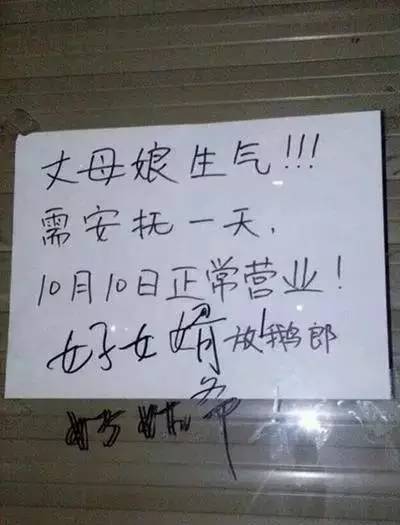 丈母娘生气!!!
需安抚一天,
10月10日正常营业!
好女婿放鹅郎